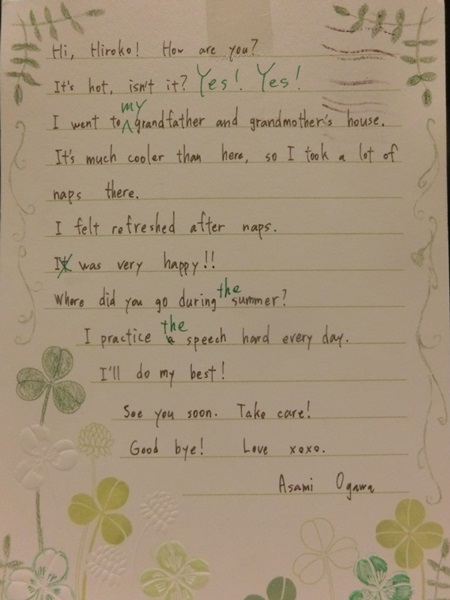 Hi, Hiroko! How are you?
It's hot, isn't it? Yes! Yes!
I went to my grandfather and grandmother's house.
It's much cooler than here, so I took a lot of
naps there.
I felt refreshed after naps.
It was very happy!!
Where did you go during the summer?
I practice the speech hard every day.
I'll do my best!
See you soon. Take care!
Good bye! Love xoxo.
Asami Ogawa